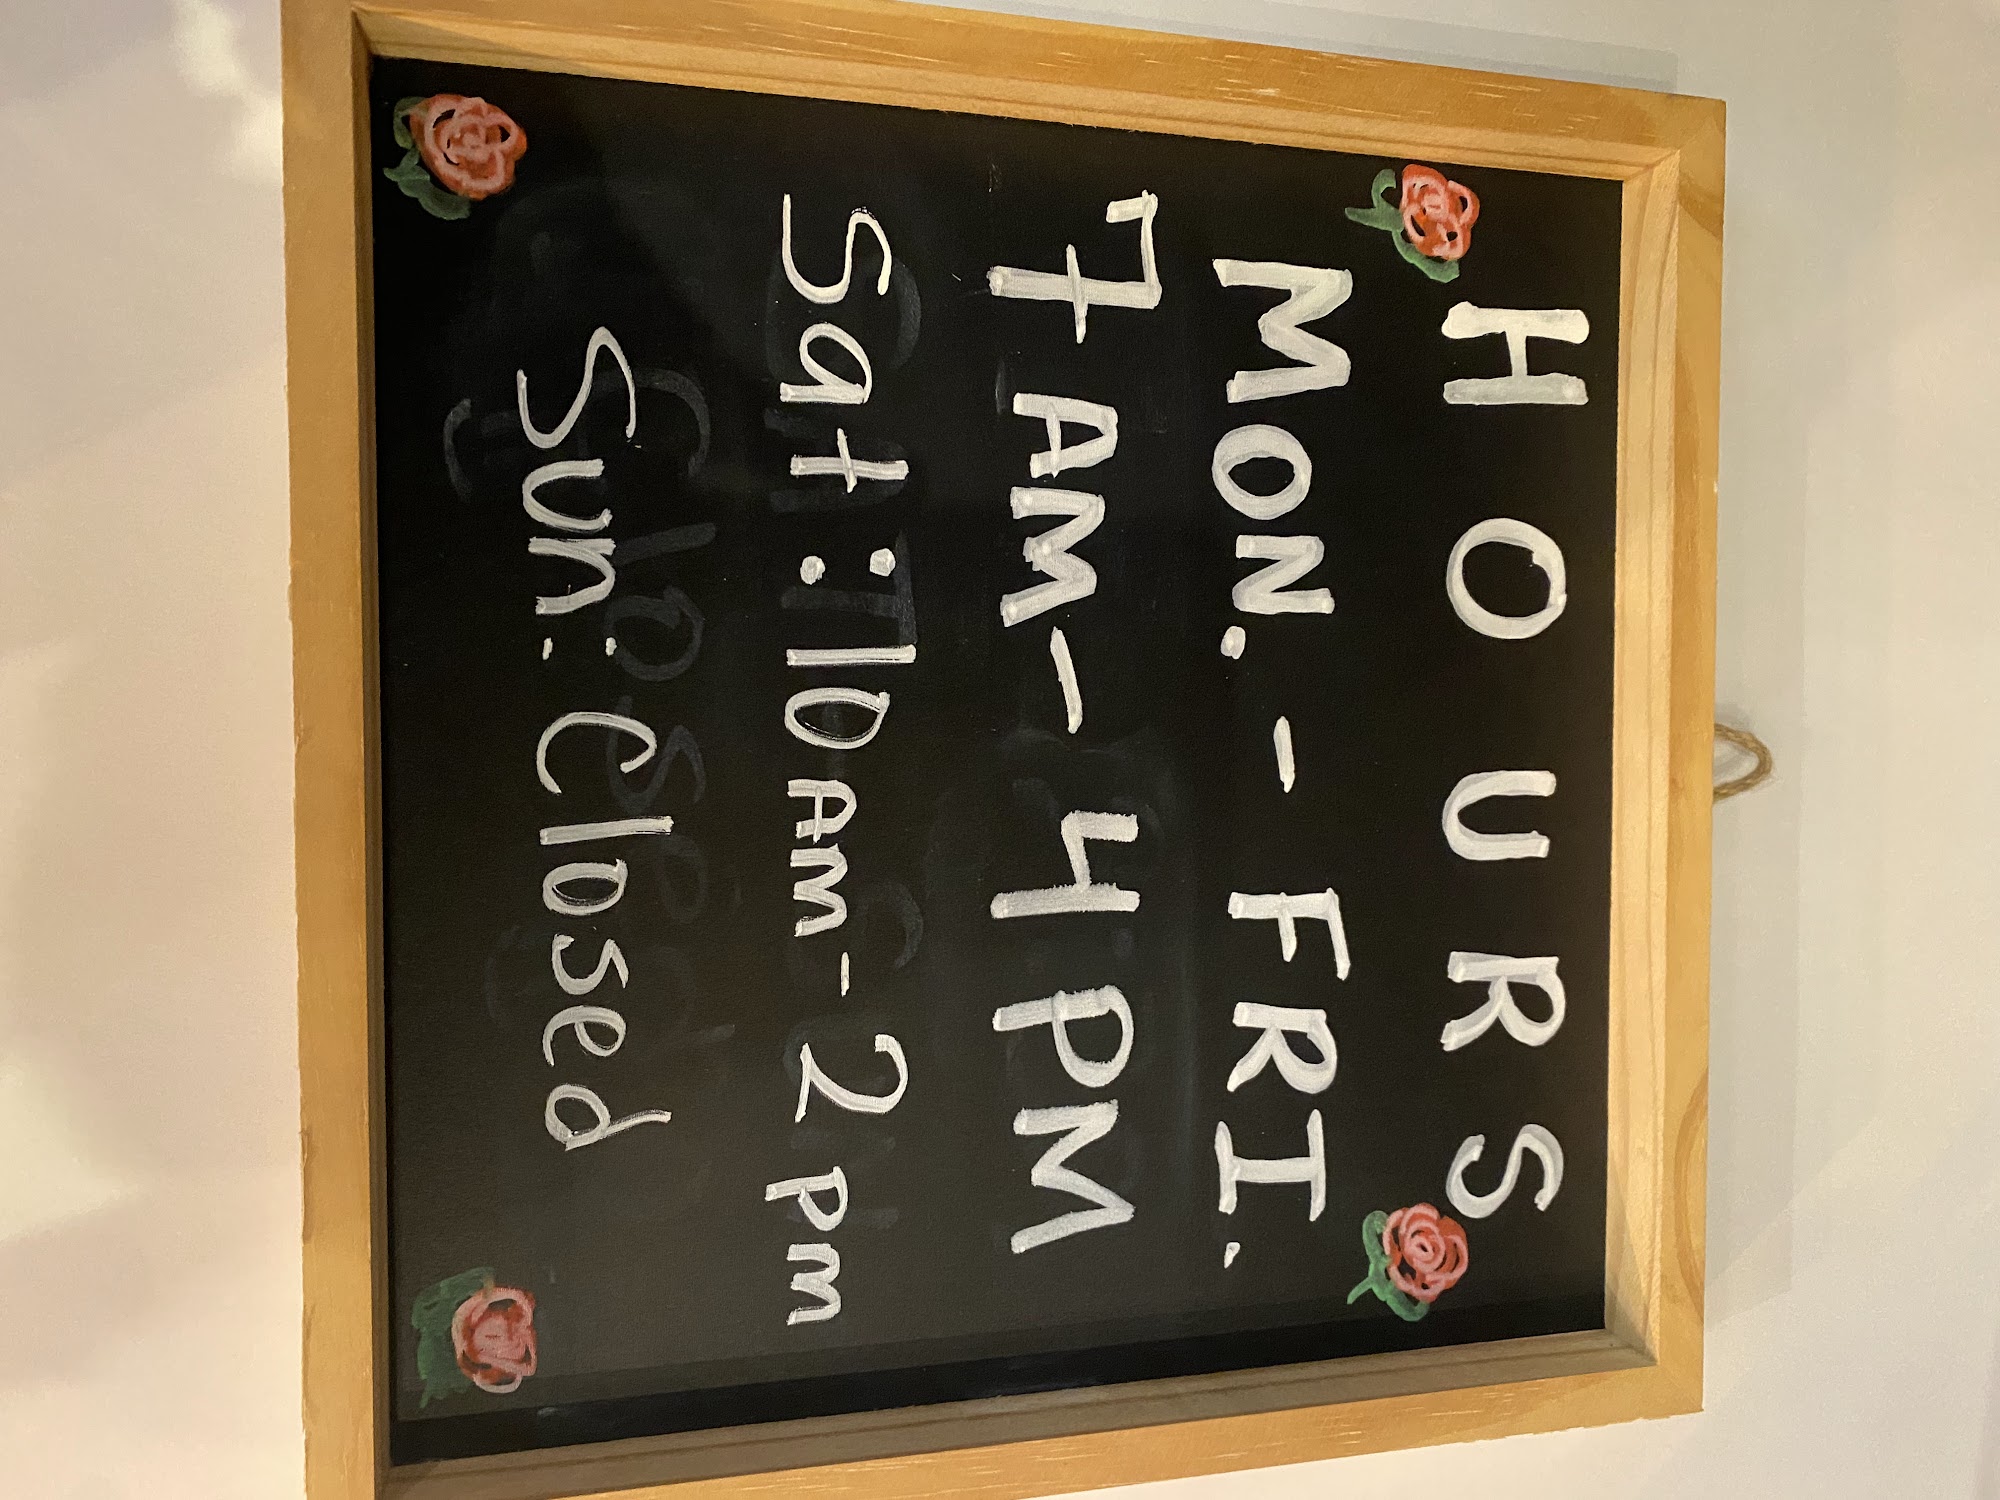 HOURS
MON. - FRI.
7AM - 4PM
Sat: 10AM - 2PM
Sun: Closed